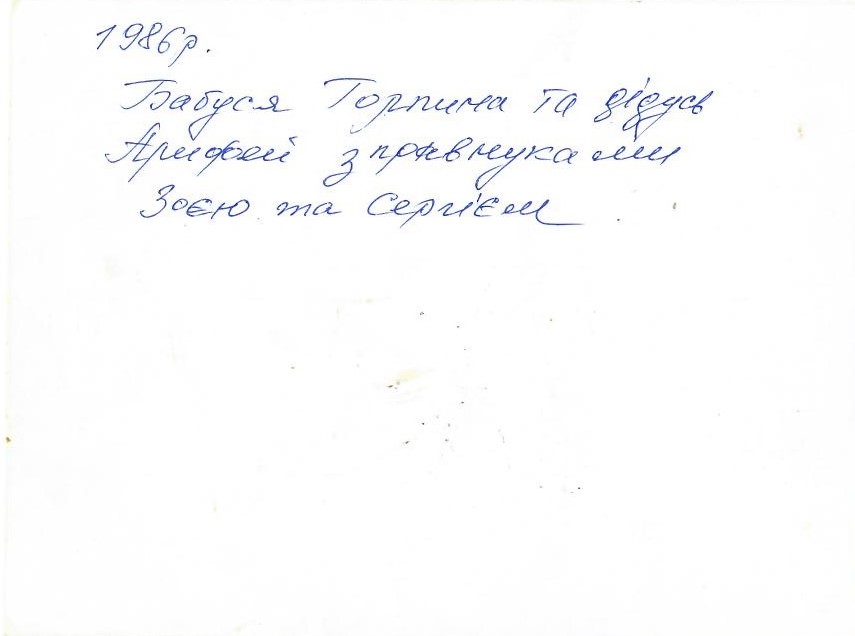 1986р.
Бабуся Горпина та дідусь
з правнуками
Зоєю та Сергієм